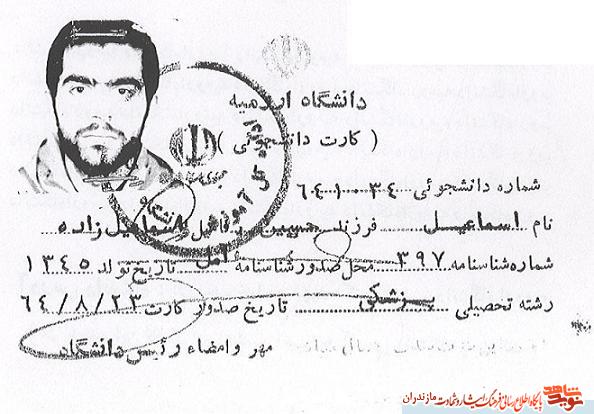 دانشگاه ارومیه
( کارت دانشجوئی )
شماره دانشجوئی ۶۴۱۰۳۴
نام اسماعیل فرزند حسین نام فامیل اسماعیل زاده
شماره شناسنامه ۳۹۷ محل صدور شناسنامه آمل تاریخ تولد ۱۳۴۵
رشته تحصیلی پزشکی تاریخ صدور کارت ۶۴/۸/۲۳
مهر و امضاء رئیس دانشگاه
اداره کل آموزش
نوید شاهد
پایگاه اطلاع رسانی فرهنگ ایثار و شهادت مازندران